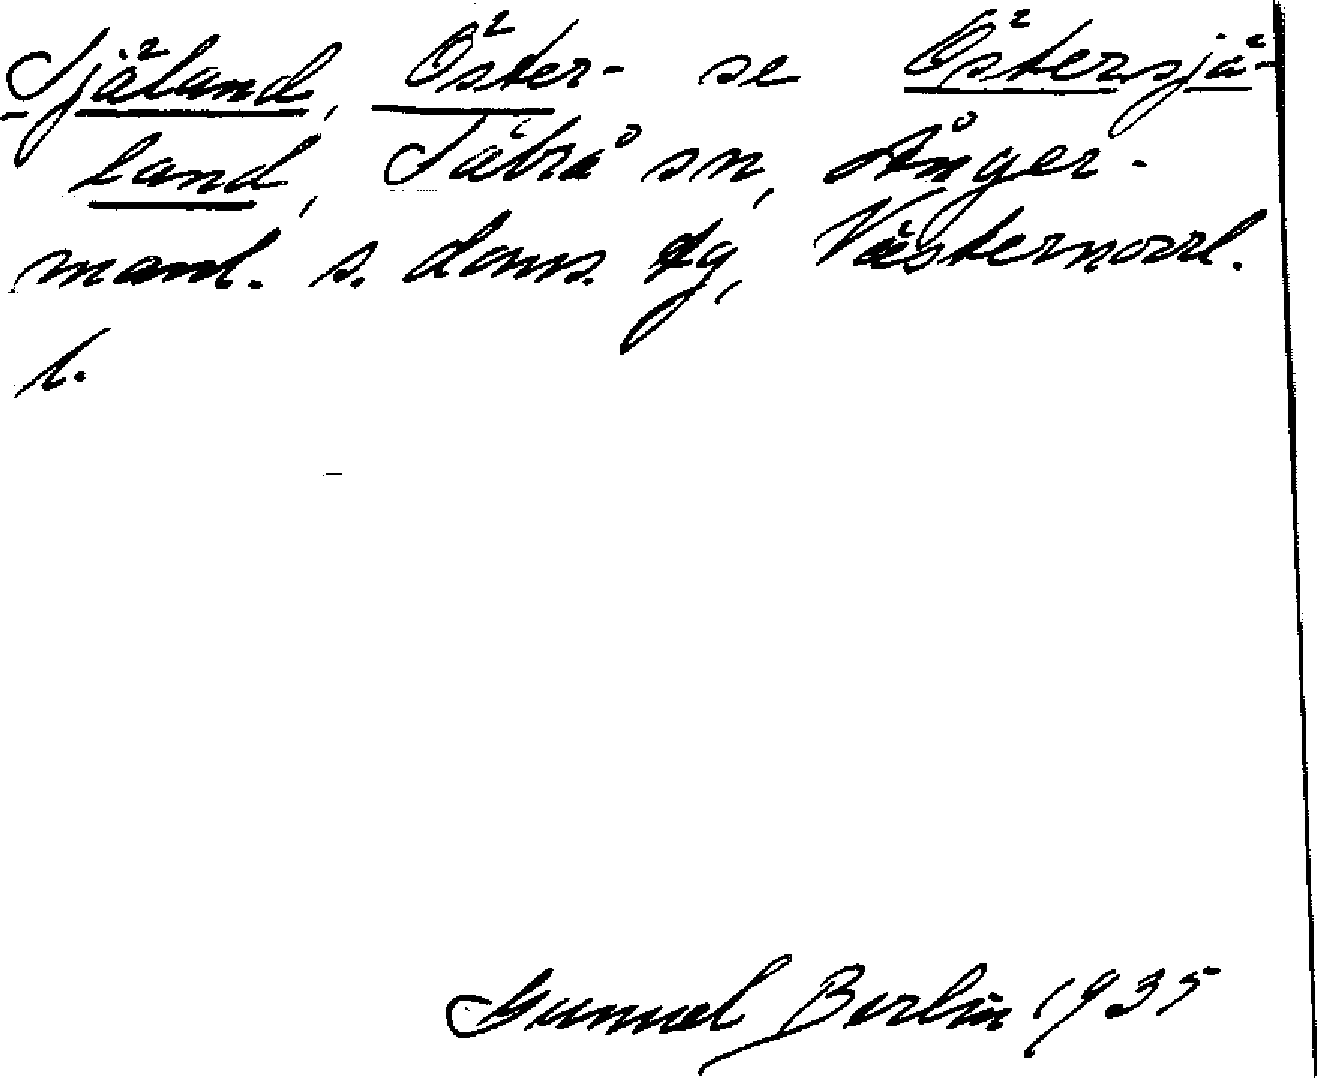 Själand, Öster- se Östersjä-
land, Säbrå sn, Ånger-
manl. s. doms. tg, Västernorrl.
l.
Gunnel Berlin 1935